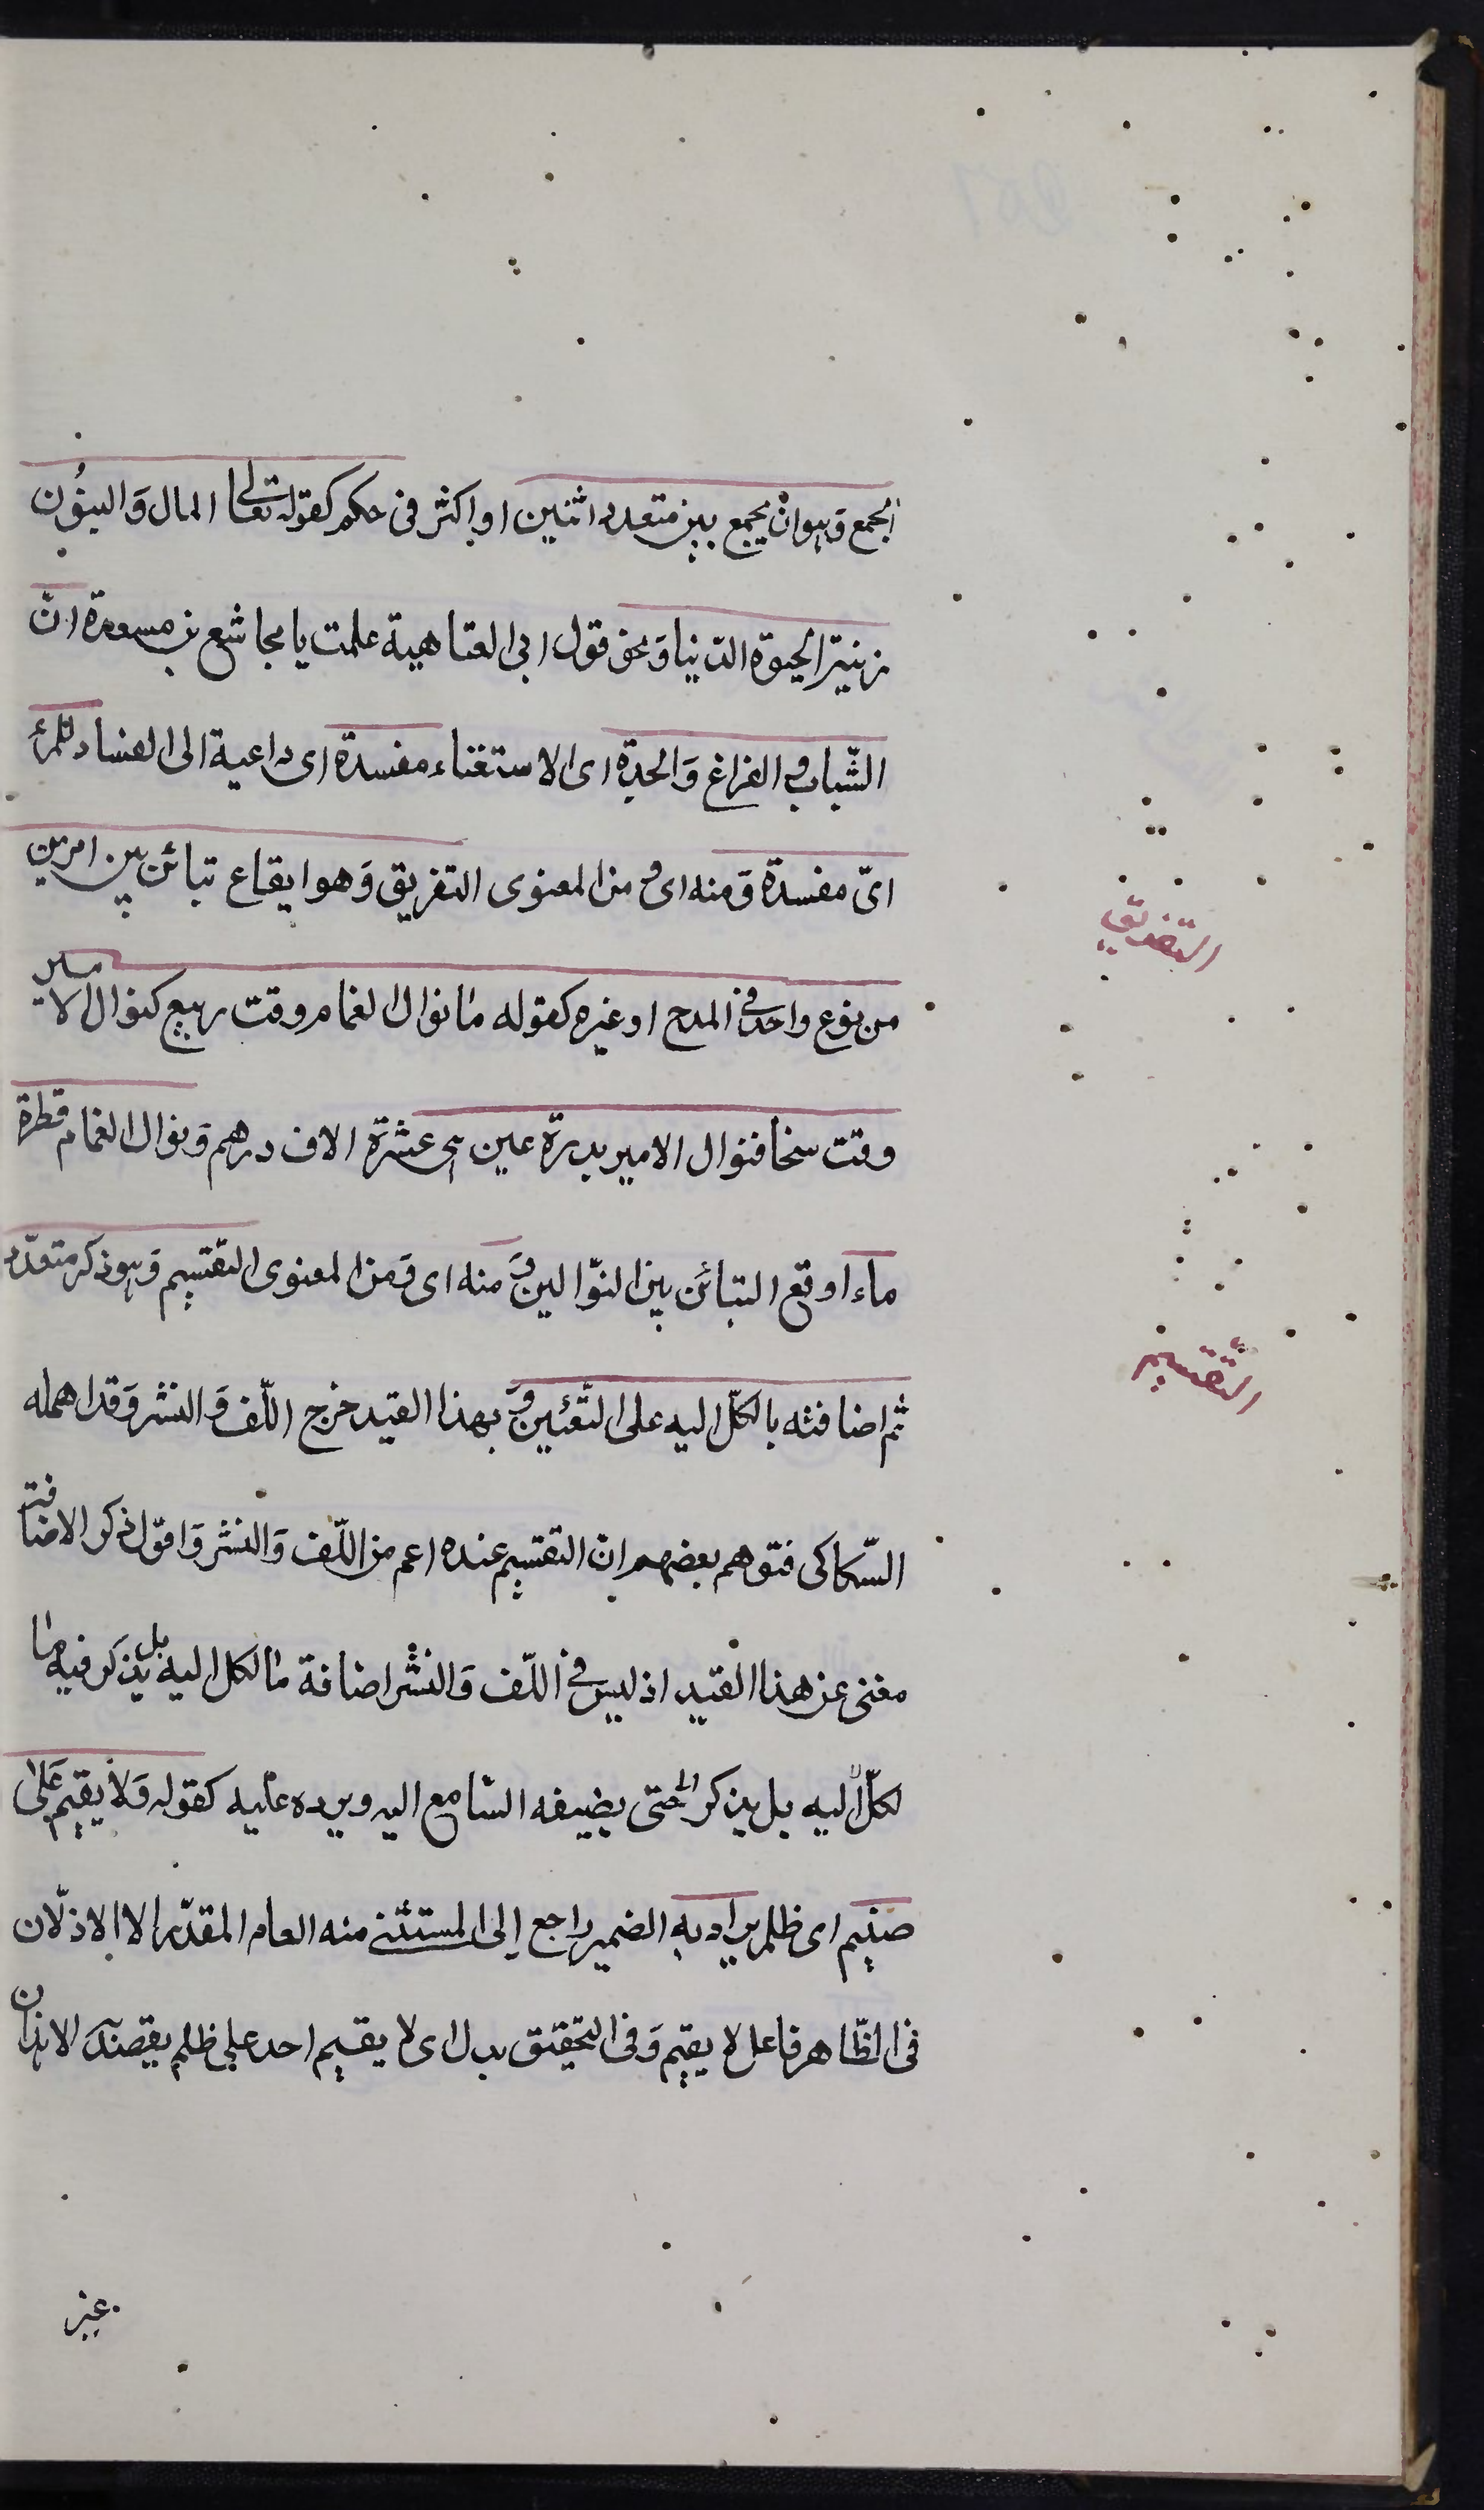 الجمع وَهو انْ يجمع بين متعدد اثنين او اكثر فى حكم كقوله تعالى المال وَالبنُون
زنيةالحيوة الدنيا وَنحو قول ابى العتاهية علمت يا مجاشع بن مسعدة انّ
الشّباب والفراغ وَالجدة اى الاستغناء مفسدة اى داعية الى الفساد للمرء
اىّ مفسدة وَمنه اى ومن المعنوى التفريق وَهو ايقاع تبائن بين امرين
التفريق
من نوع واحد فى المدح او غيره كقوله مانوال الغمام وقت ربيع كنوال الامير
وقت سخا فنوال الامير بدرة عين هى عشرة الاف درهم وَنوال الغمام قطرة
ماء اوقع التبائن بين النوّالين وَمنه اى وَمن المعنوى التقسيم وَهو ذكر متعدّد
التقسيم
ثم اضافته بالكلّ اليه على التّعئين وَ بهذا القيد خرج اللّف وَالنشر وَقد اهمله
السّكاكى فتوهم بعضهم ان التقسيم عنده اعم من اللّف وَالنشر وَاقول ذكر الاضافة
مغنى عن هذا القيد اذ ليس فى اللّف وَالنشر اضافة مالكل اليه بل يذكر فيه ما
لكلّ اليه بل يذكر حتى يضيفه السّامع اليه ويرده عليه كقوله وَلا يقيم عَلى
ضيم اى ظلم يراد به الضمير راجع إلى المستثنى منه العام المقدّر الا الاذلّان
فى الظّاهر فاعل لا يقيم وَفى التحقيق بدل اى لا يقيم احد على ظلم يقصد الا هذان
عير